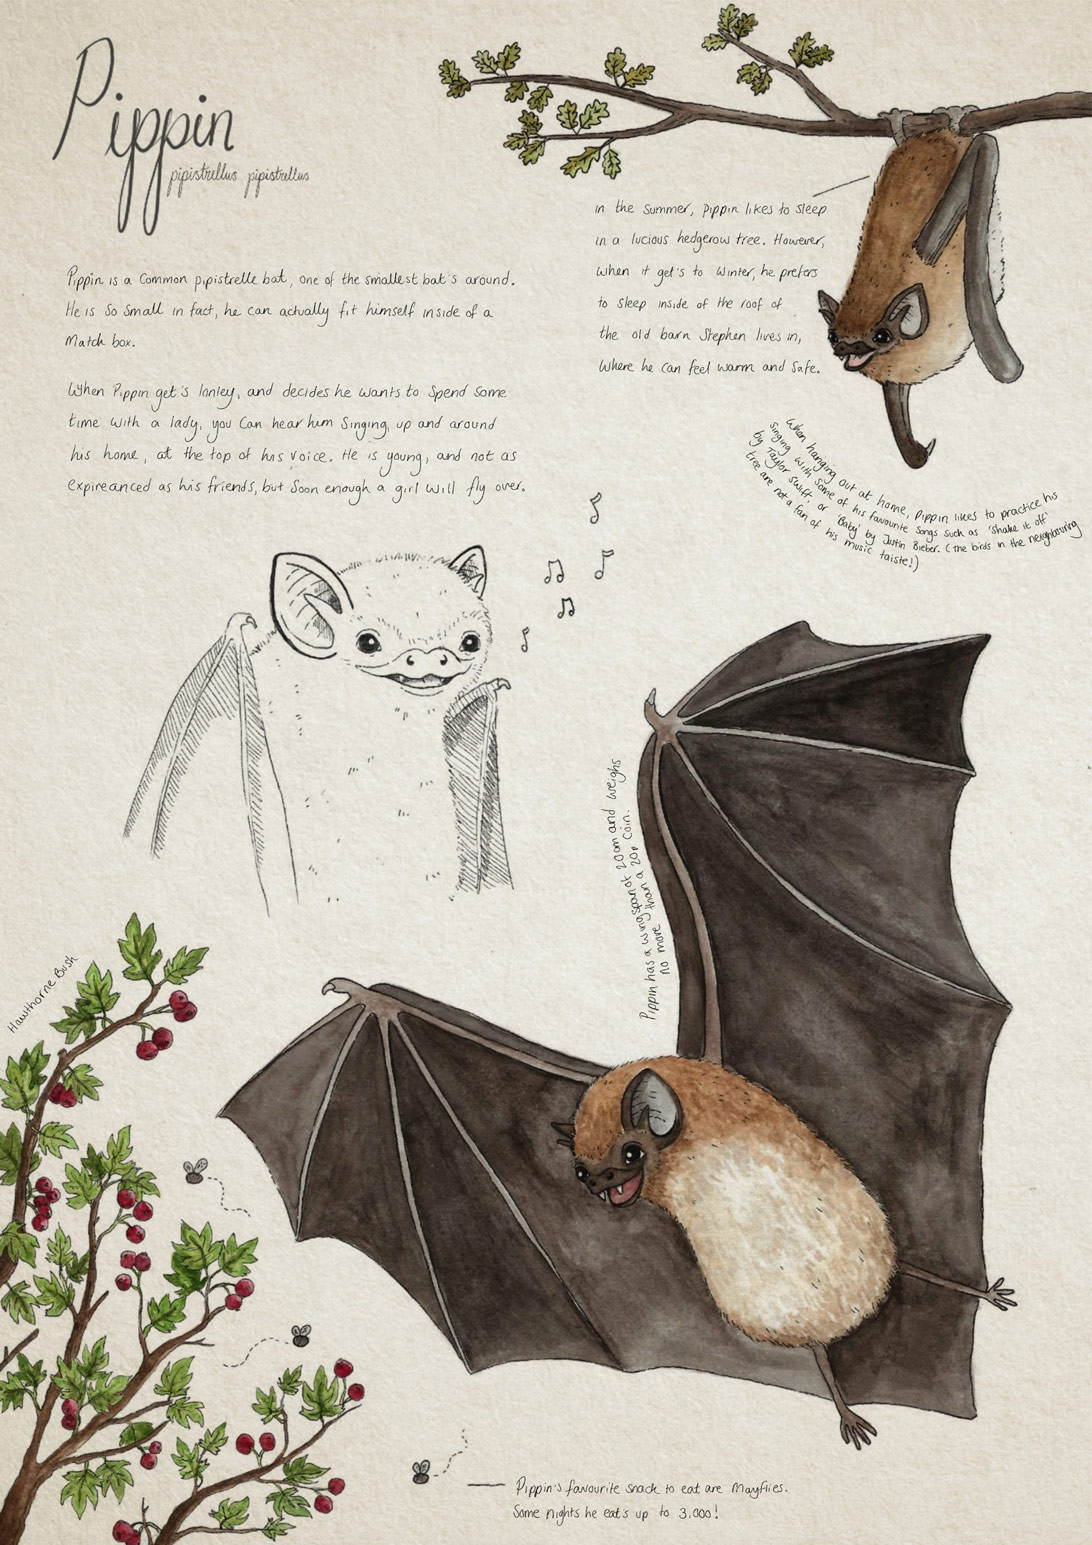 Pippin
pipistrellus pipistrellus
Pippin is a Common pipistrelle bat, one of the smallest bat's around.
He is so small in fact, he can actually fit himself inside of a
Match box.
When Pippin get's lonley, and decides he wants to spend some
time with a lady, you can hear him singing, up and around
his home, at the top of his voice. He is young, and not as
expireanced as his friends, but soon enough a girl will fly over.
in the summer, pippin likes to sleep
in a lucious hedgerow tree. However,
when it get's to winter, he prefers
to sleep inside of the roof of
the old barn Stephen lives in,
where he can feel warm and safe.
When hanging out at home, Pippin likes to practice his
singing with some of his favourite songs such as 'shake it off'
by Taylor swift, or 'Baby' by Justin Bieber. (The birds in the neighbouring
tree are not a fan of his music taiste!)
Pippin has a wingspan of 20cm and weighs
no more than a 20p coin.
Hawthorne Bush
Pippin's favourite snack to eat are Mayflies.
Some nights he eat's up to 3.000!